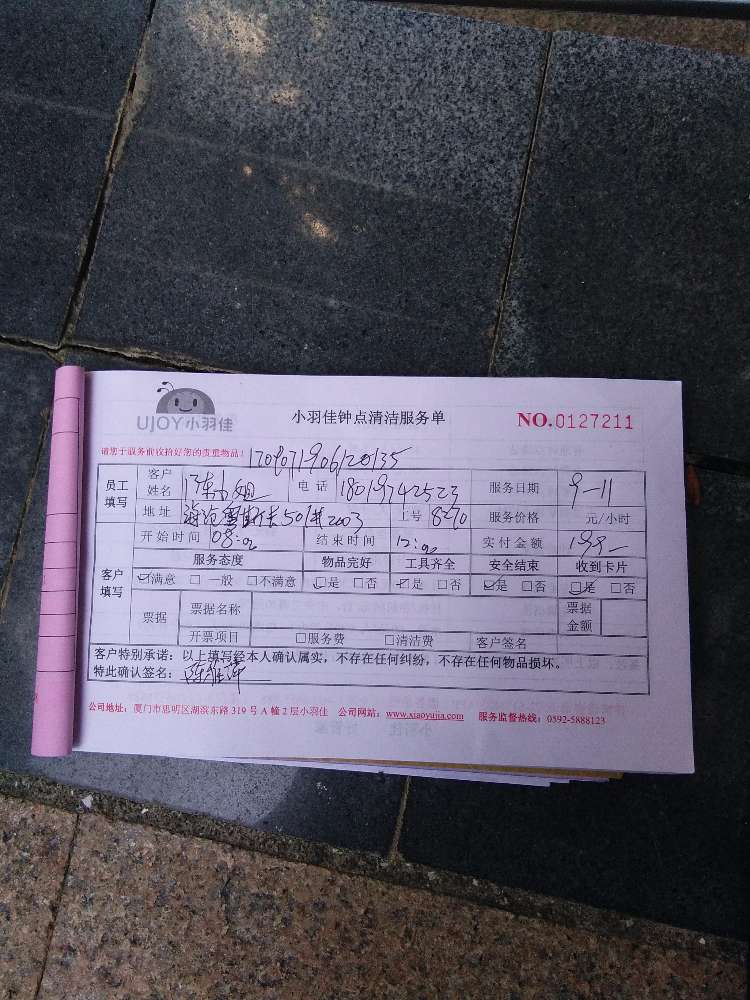 UJOY小羽佳
小羽佳钟点清洁服务单
NO.0127211
请您于服务前收拾好您的贵重物品!
员工填写 客户姓名 陈小姐 电话 18019742523 服务日期 9-11
地址 501 2003 工号 8270 服务价格 元/小时
客户填写 开始时间 08:00 结束时间 12:00 实付金额
服务态度 物品完好 工具齐全 安全结束 收到卡片
☑满意 □一般 □不满意 ☑是 □否 ☑是 □否 ☑是 □否 ☑是 □否
票据 票据名称 票据金额
开票项目 □服务费 □清洁费 客户签名
客户特别承诺:以上填写经本人确认属实,不存在任何纠纷,不存在任何物品损坏。
特此确认签名:
公司地址:厦门市思明区湖滨东路319号A幢2层小羽佳 公司网站:www.xiaoyujia.com 服务监督热线:0592-5888123